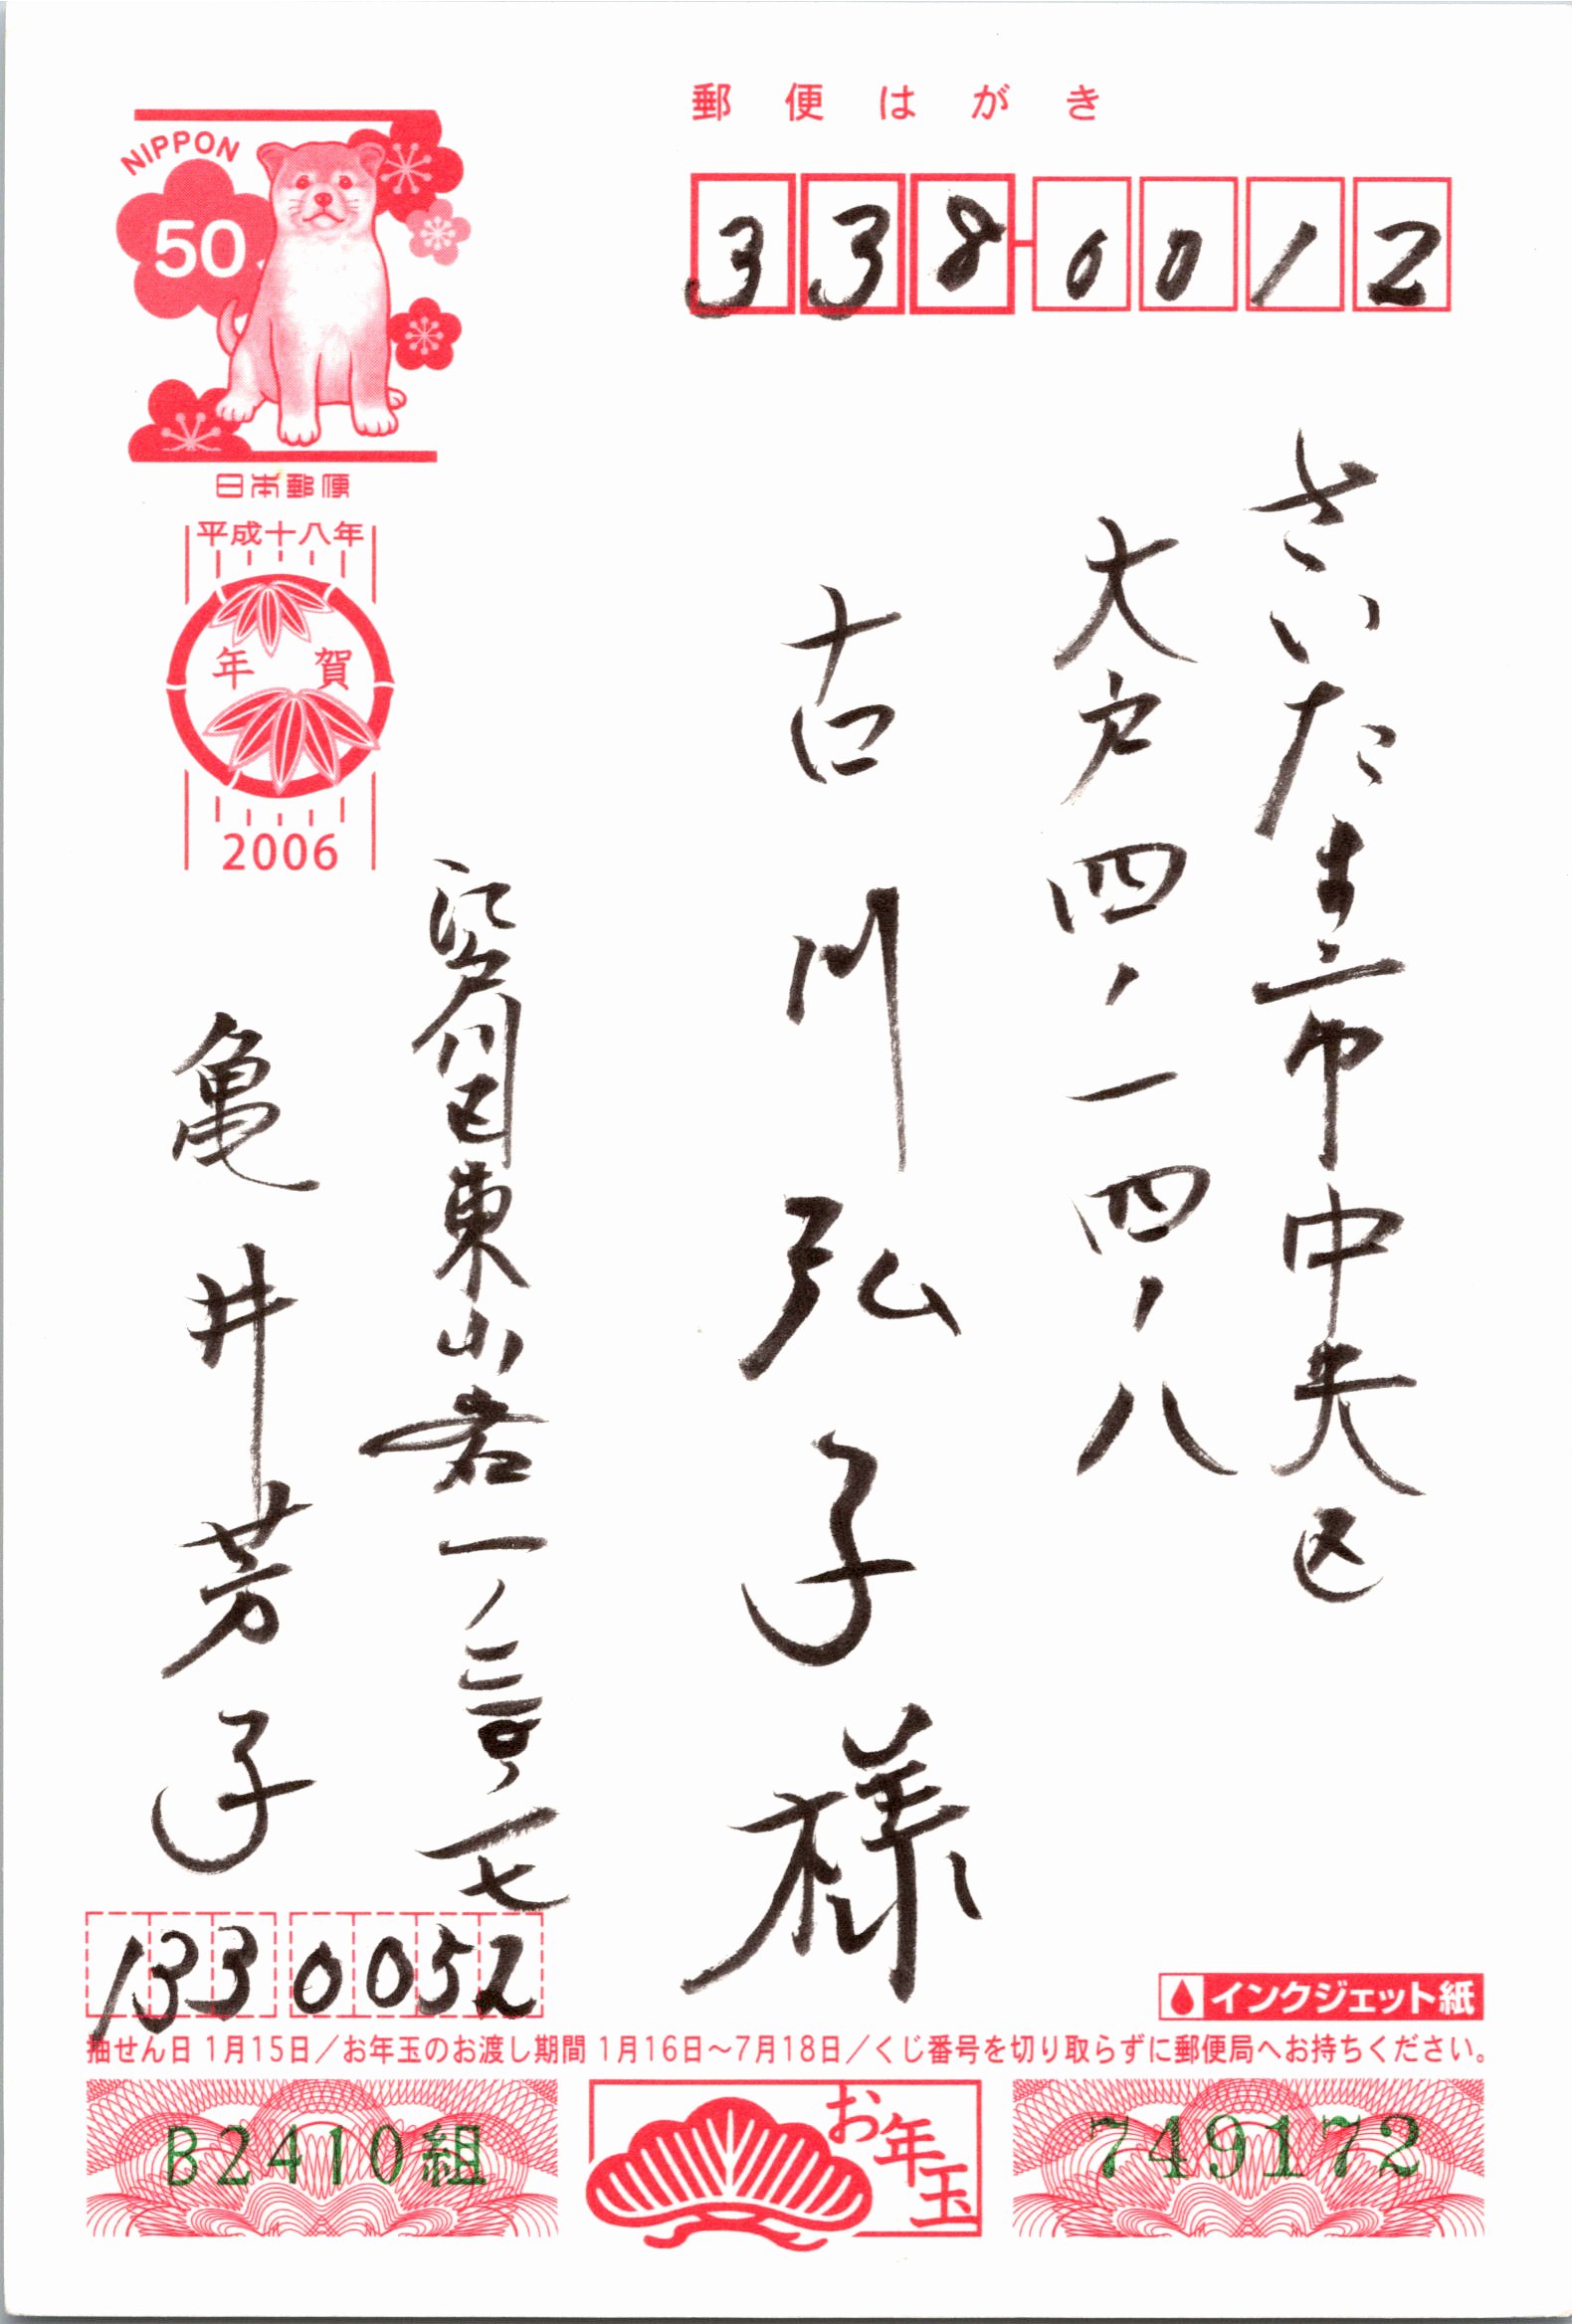 郵便はがき
338-0012
さいたま市中央区
大戸四ノ一四ノ八
古川弘子様
NIPPON
50
日本郵便
平成十八年
年賀
2006
江戸川区東小岩一ノ二〇ノ一七
亀井芳子
1330052
インクジェット紙
抽せん日 1月15日／お年玉のお渡し期間 1月16日～7月18日／くじ番号を切り取らずに郵便局へお持ちください。
B2410組
お年玉
749172